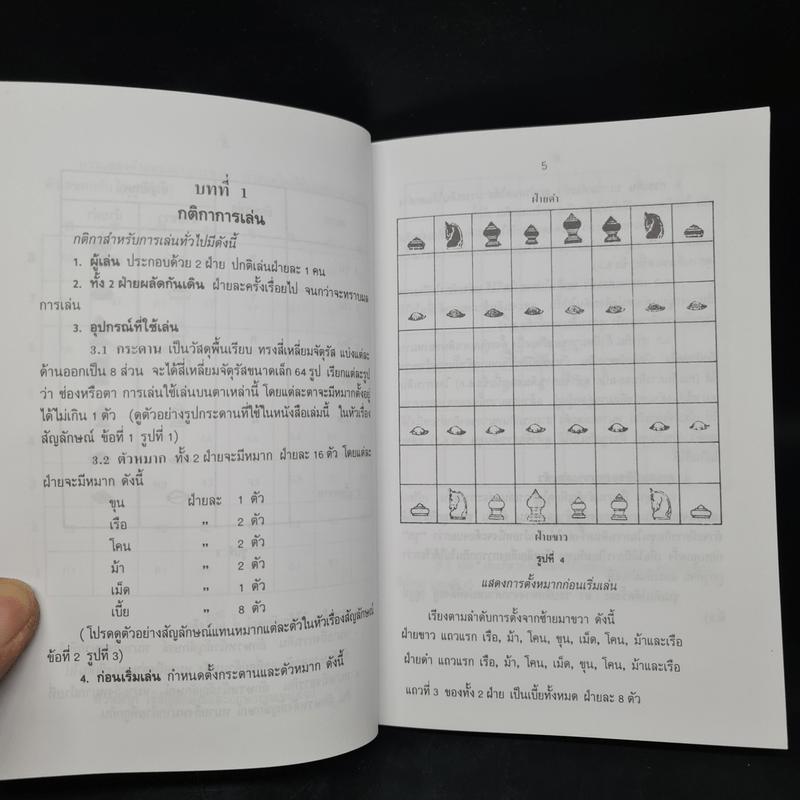 บทที่ 1
กติกาการเล่น
กติกาสำหรับการเล่นทั่วไปมีดังนี้
1. ผู้เล่น ประกอบด้วย 2 ฝ่าย ปกติเล่นฝ่ายละ 1 คน
2. ทั้ง 2 ฝ่ายผลัดกันเดิน ฝ่ายละครั้งเรื่อยไป จนกว่าจะทราบผล
การเล่น
3. อุปกรณ์ที่ใช้เล่น
3.1 กระดาน เป็นวัสดุพื้นเรียบ ทรงสี่เหลี่ยมจัตุรัส แบ่งแต่ละ
ด้านออกเป็น 8 ส่วน จะได้สี่เหลี่ยมจัตุรัสขนาดเล็ก 64 รูป เรียกแต่ละรูป
ว่า ช่องหรือตา การเล่นใช้เล่นบนตาเหล่านี้ โดยแต่ละตาจะมีหมากตั้งอยู่
ได้ไม่เกิน 1 ตัว (ดูตัวอย่างรูปกระดานที่ใช้ในหนังสือเล่มนี้ ในหัวเรื่อง
สัญลักษณ์ ข้อที่ 1 รูปที่ 1)
3.2 ตัวหมาก ทั้ง 2 ฝ่ายจะมีหมาก ฝ่ายละ 16 ตัว โดยแต่ละ
ฝ่ายจะมีหมาก ดังนี้
ขุน ฝ่ายละ 1 ตัว
เรือ " 2 ตัว
โคน " 2 ตัว
ม้า " 2 ตัว
เม็ด " 1 ตัว
เบี้ย " 8 ตัว
(โปรดดูตัวอย่างสัญลักษณ์แทนหมากแต่ละตัวในหัวเรื่องสัญลักษณ์
ข้อที่ 2 รูปที่ 3)
4. ก่อนเริ่มเล่น กำหนดตั้งกระดานและตัวหมาก ดังนี้
5
ฝ่ายดำ
ฝ่ายขาว
รูปที่ 4
แสดงการตั้งหมากก่อนเริ่มเล่น
เรียงตามลำดับการตั้งจากซ้ายมาขวา ดังนี้
ฝ่ายขาว แถวแรก เรือ, ม้า, โคน, ขุน, เม็ด, โคน, ม้าและเรือ
ฝ่ายดำ แถวแรก เรือ, ม้า, โคน, เม็ด, ขุน, โคน, ม้าและเรือ
แถวที่ 3 ของทั้ง 2 ฝ่าย เป็นเบี้ยทั้งหมด ฝ่ายละ 8 ตัว